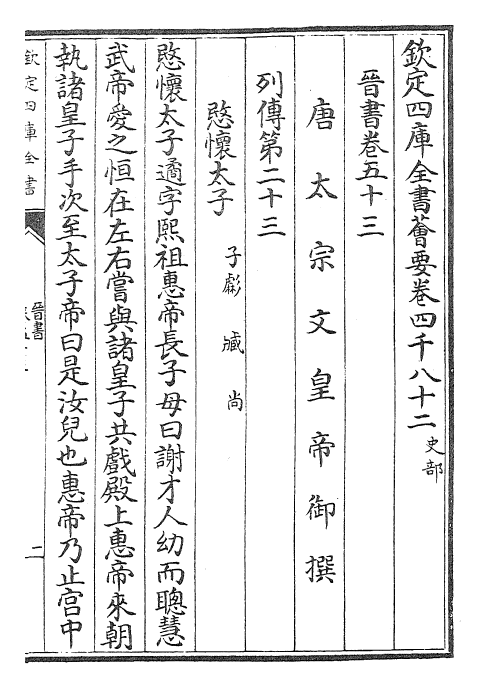 欽定四庫全書薈要卷四千八十二 史部
晉書卷五十三
唐太宗文皇帝御撰
列傳第二十三
愍懷太子 子虨 臧 尚
愍懷太子遹字熙祖惠帝長子母曰謝才人幼而聰慧
武帝愛之恒在左右嘗與諸皇子共戲殿上惠帝來朝
執諸皇子手次至太子帝曰是汝兒也惠帝乃止宫中
欽定四庫全書
晉書
二